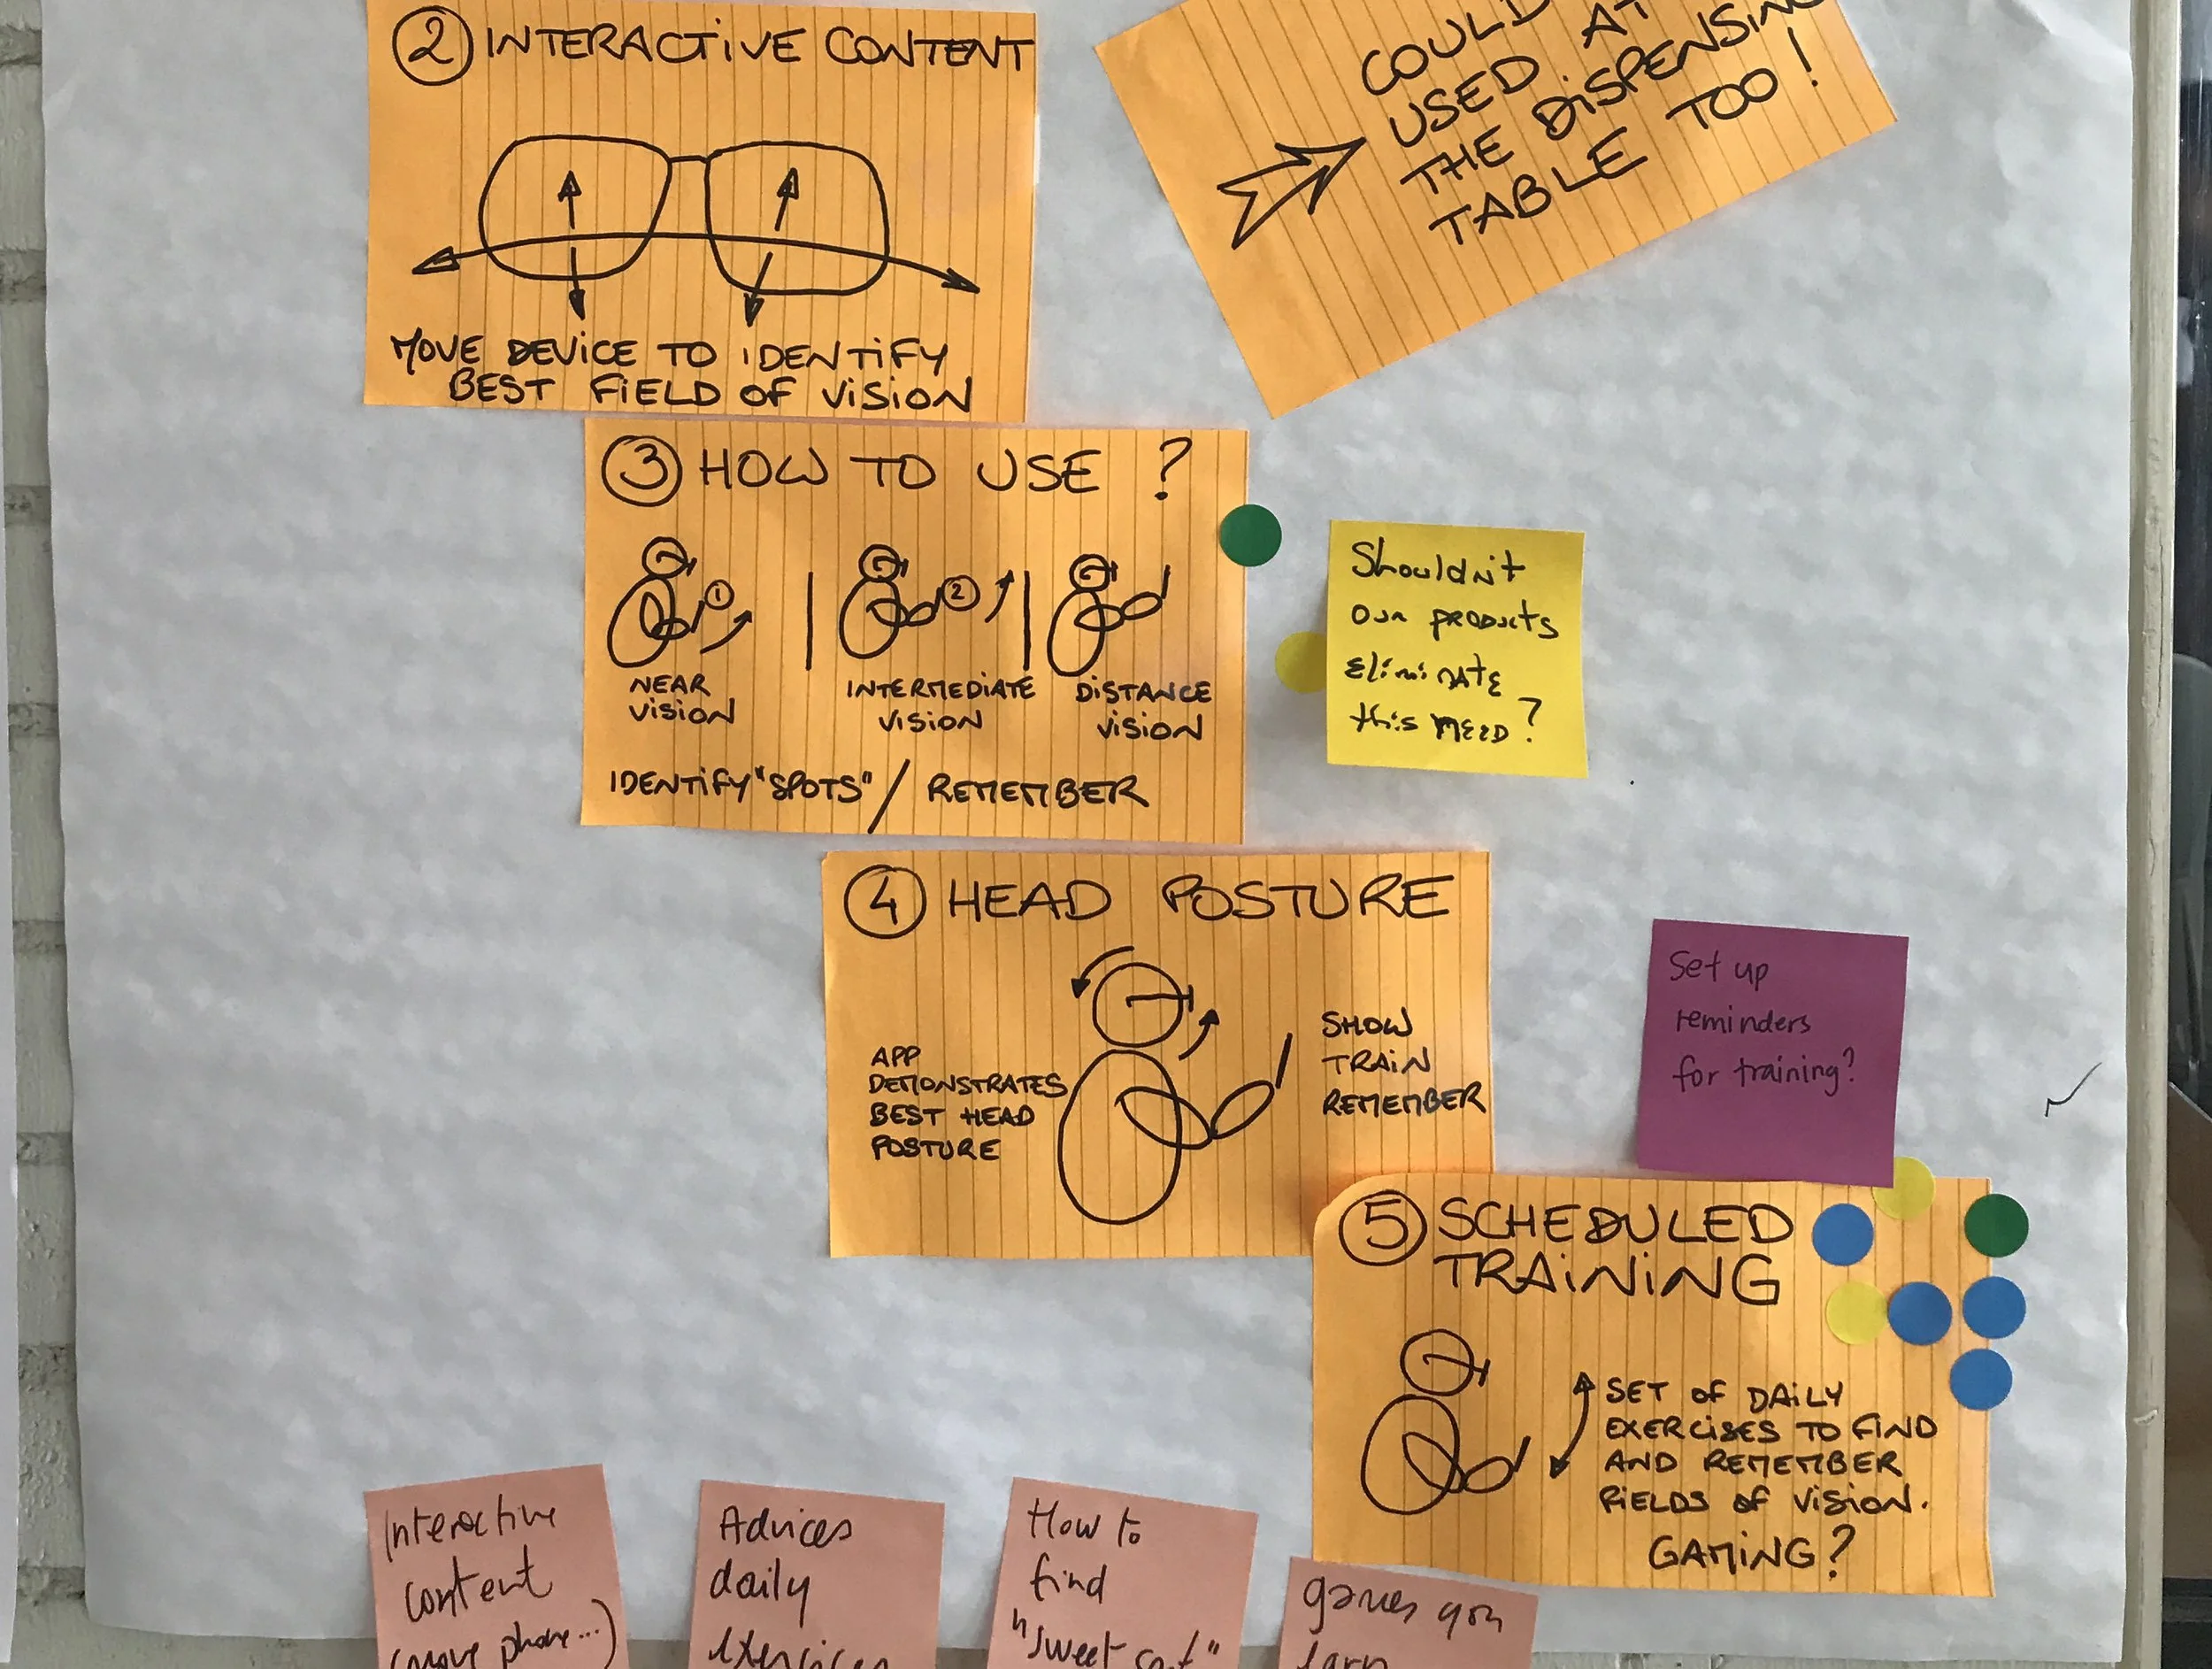 ② INTERACTIVE CONTENT
MOVE DEVICE TO IDENTIFY
BEST FIELD OF VISION
COULD
USED AT
THE DISPENSIN
TABLE TOO!
③ HOW TO USE ?
①
②
NEAR
VISION
INTERMEDIATE
VISION
DISTANCE
VISION
IDENTIFY "SPOTS" / REMEMBER
Shouldn't
our products
eliminate
this need?
④ HEAD POSTURE
APP
DEMONSTRATES
BEST HEAD
POSTURE
SHOW
TRAIN
REMEMBER
Set up
reminders
for training?
⑤ SCHEDULED
TRAINING
SET OF DAILY
EXERCISES TO FIND
AND REMEMBER
FIELDS OF VISION.
GAMING?
Interactive
content
(move phone...)
Advices
daily
exercices
How to
find
"sweet
games you